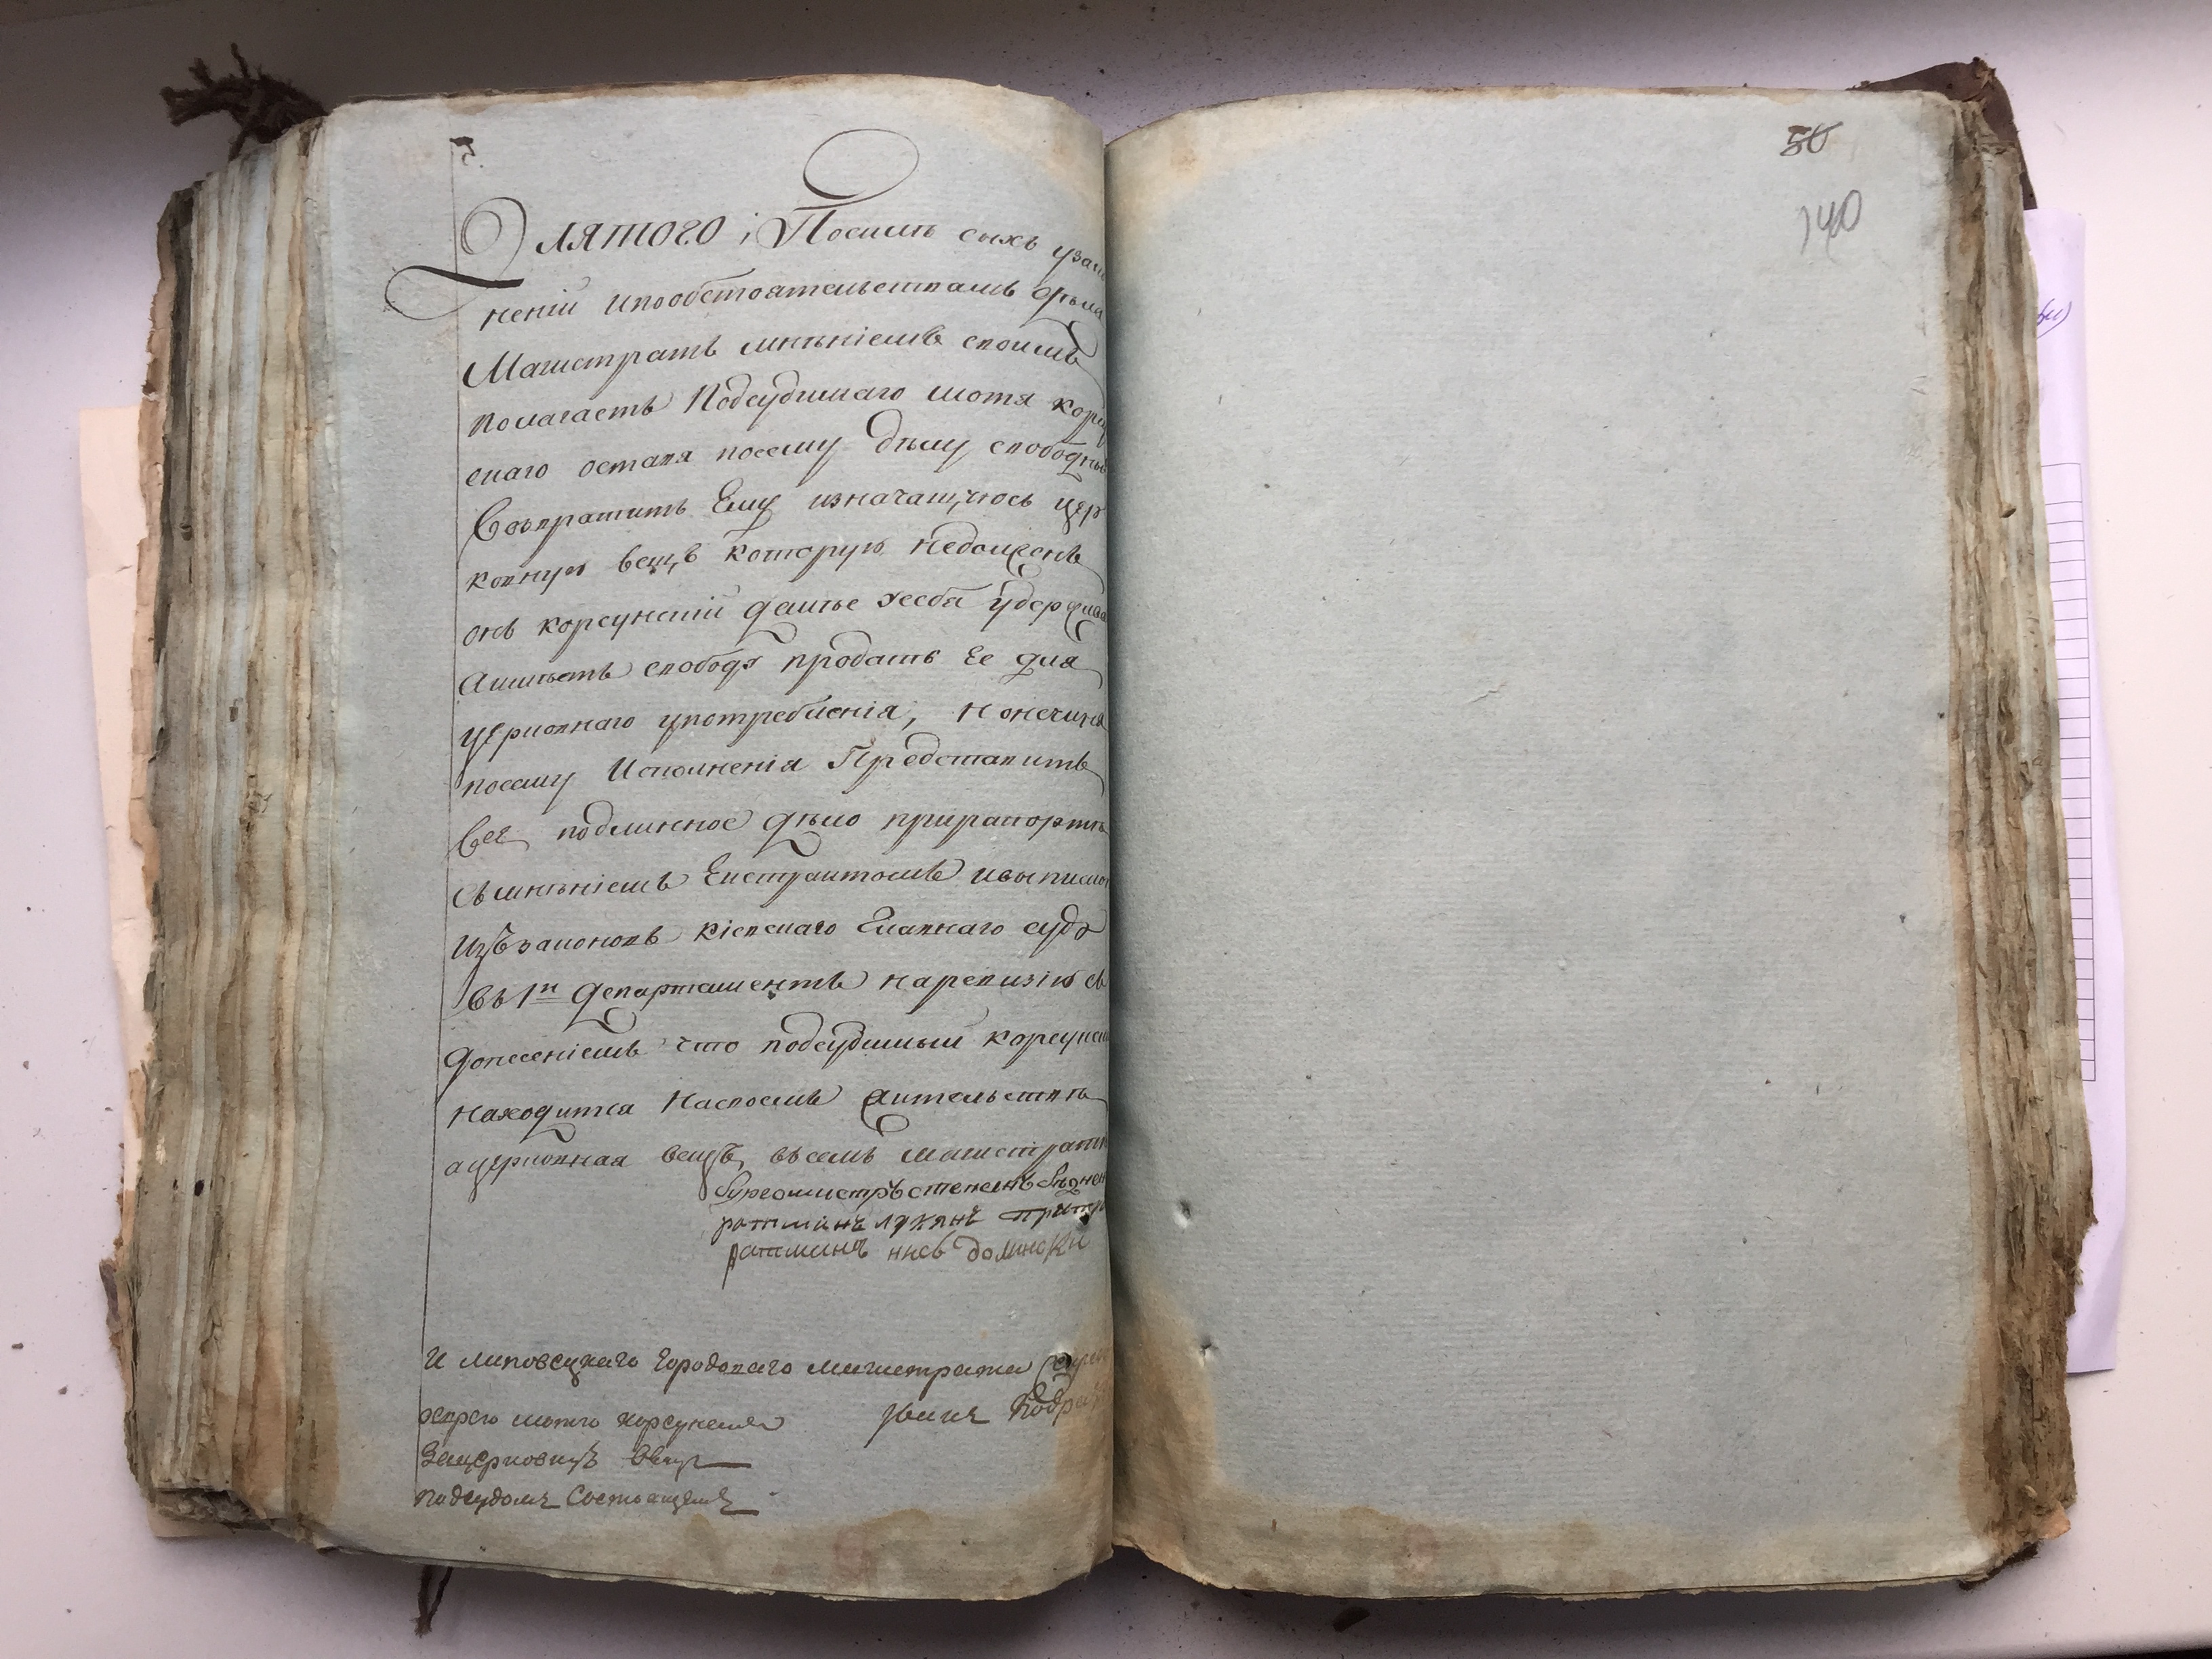 50
140
Для того і Посилѣ сихъ узако
неній ипообстоятельствамъ дѣла
Магистратъ мнѣніемъ своимъ
полагаетъ Подсудимаго мотя корсу
нскаго оставя посему дѣлу свободнымъ
Возвратить Ему изначащуюсь цер
ковную вещъ которую недолженъ
онъ корсунскій далѣе усебя удержива
Аимѣетъ свободу продать Ее для
церковнаго употребленія, Но нечиня
посему Исполненія Представить
Все подлинное дѣло прирапортѣ
Съмнѣніемъ Екстрактомъ ивыпискою
Изъ законовъ кіевскаго Главнаго суда
Въ 1й Департаментъ наревизію съ
донесеніемъ что подсудимый корсунск
находится Насвоемъ жительствѣ
ацерковная вещъ, въ семъ магистратѣ
Бургомистръ степанъ
ратманъ лукянъ
ратманъ долински
И липовецкаго городоваго магистрата
мотя корсунскаго
Зацерковную вещь
Подсудомъ Состоящемъ